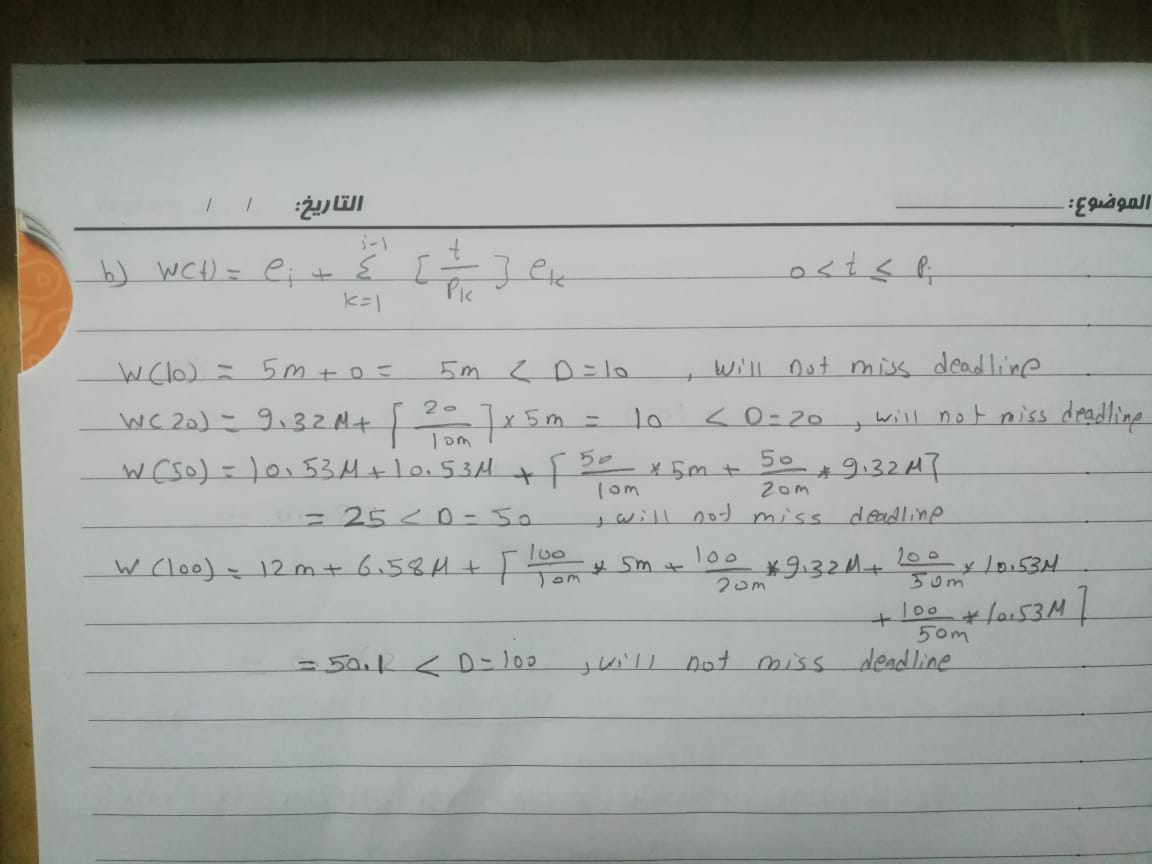 الموضوع: التاريخ: / /
b) W(t) = e_i + Σ_{k=1}^{i-1} [t/P_k] e_k 0 < t ≤ P_i
W(10) = 5m + 0 = 5m < D = 10 , will not miss deadline
W(20) = 9.32M + ⌈20/10m⌉ x 5m = 10 < D = 20 , will not miss deadline
W(50) = 10.53M + 10.53M + ⌈50/10m * 5m + 50/20m * 9.32M⌉
= 25 < D = 50 , will not miss deadline
W(100) = 12m + 6.58M + ⌈100/10m * 5m + 100/20m * 9.32M + 100/50m * 10.53M
+ 100/50m * 10.53M⌉
= 50.1 < D = 100 , will not miss deadline